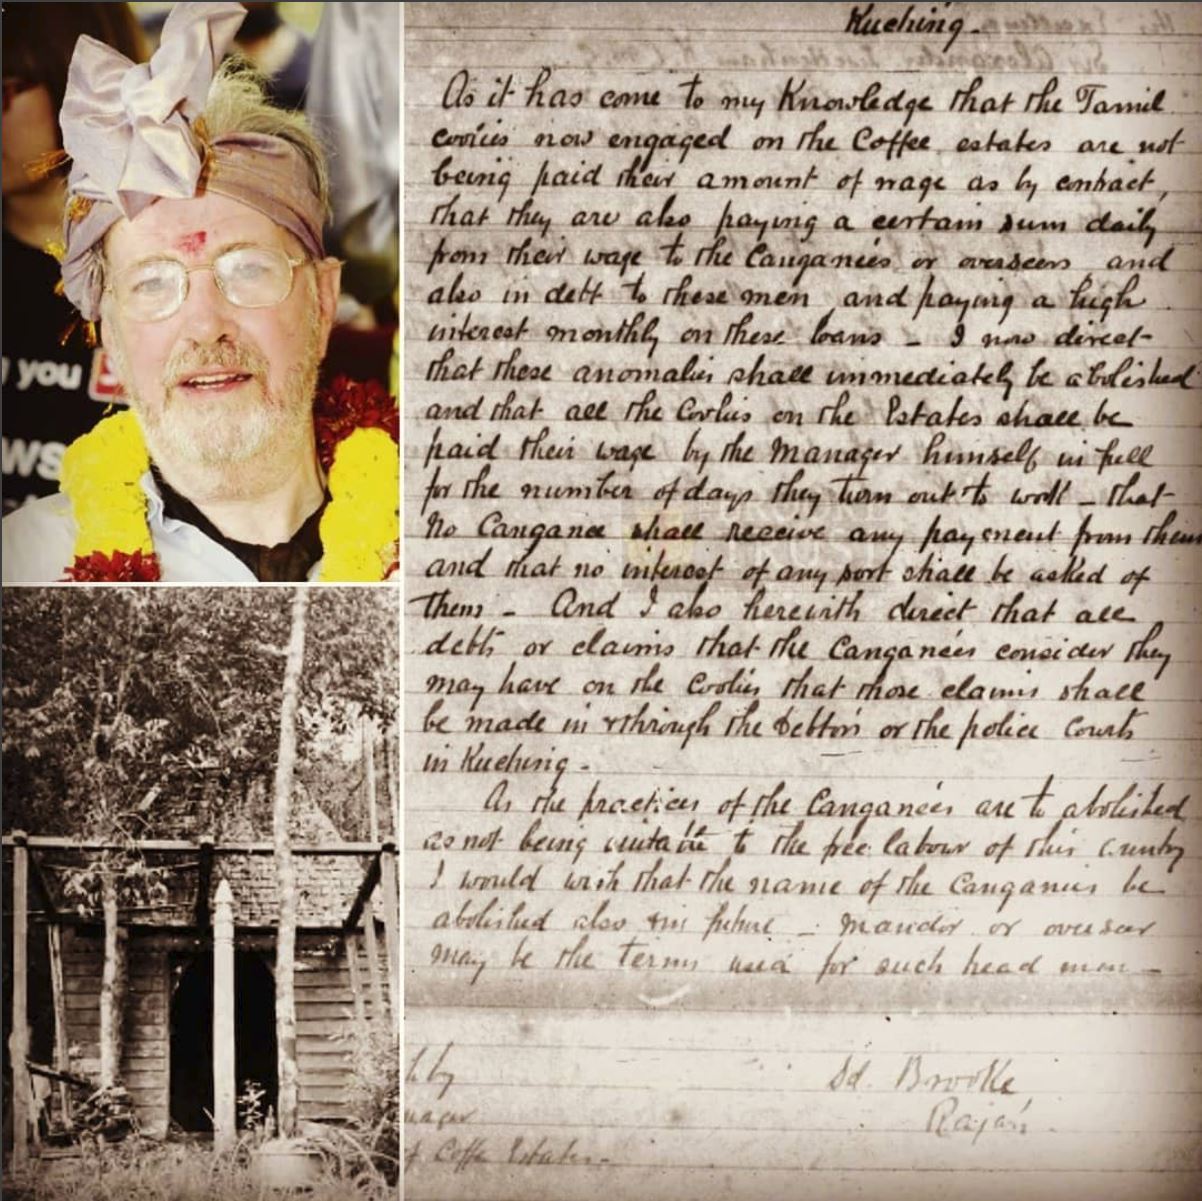 you
ws
Kuching.
As it has come to my Knowledge that the Tamil
coolies now engaged on the Coffee estates are not
being paid their amount of wage as by contract,
that they are also paying a certain sum daily
from their wage to the Canganies or overseers and
also in debt to these men and paying a high
interest monthly on these loans - I now direct
that these anomalies shall immediately be abolished
and that all the Coolies on the Estates shall be
paid their wage by the Manager himself in full
for the number of days they turn out to work - that
no Canganee shall receive any payment from them
and that no interest of any sort shall be asked of
them - And I also herewith direct that all
debts or claims that the Canganees consider they
may have on the Coolies that those claims shall
be made in through the Debtors or the police Courts
in Kuching.
As the practices of the Canganees are to abolished
as not being suitable to the free labour of this Country
I would wish that the name of the Canganies be
abolished also in future - Mandor or overseer
may be the terms used for such head men -
by
Sd. Brooke
Rajah
Coffee Estates.